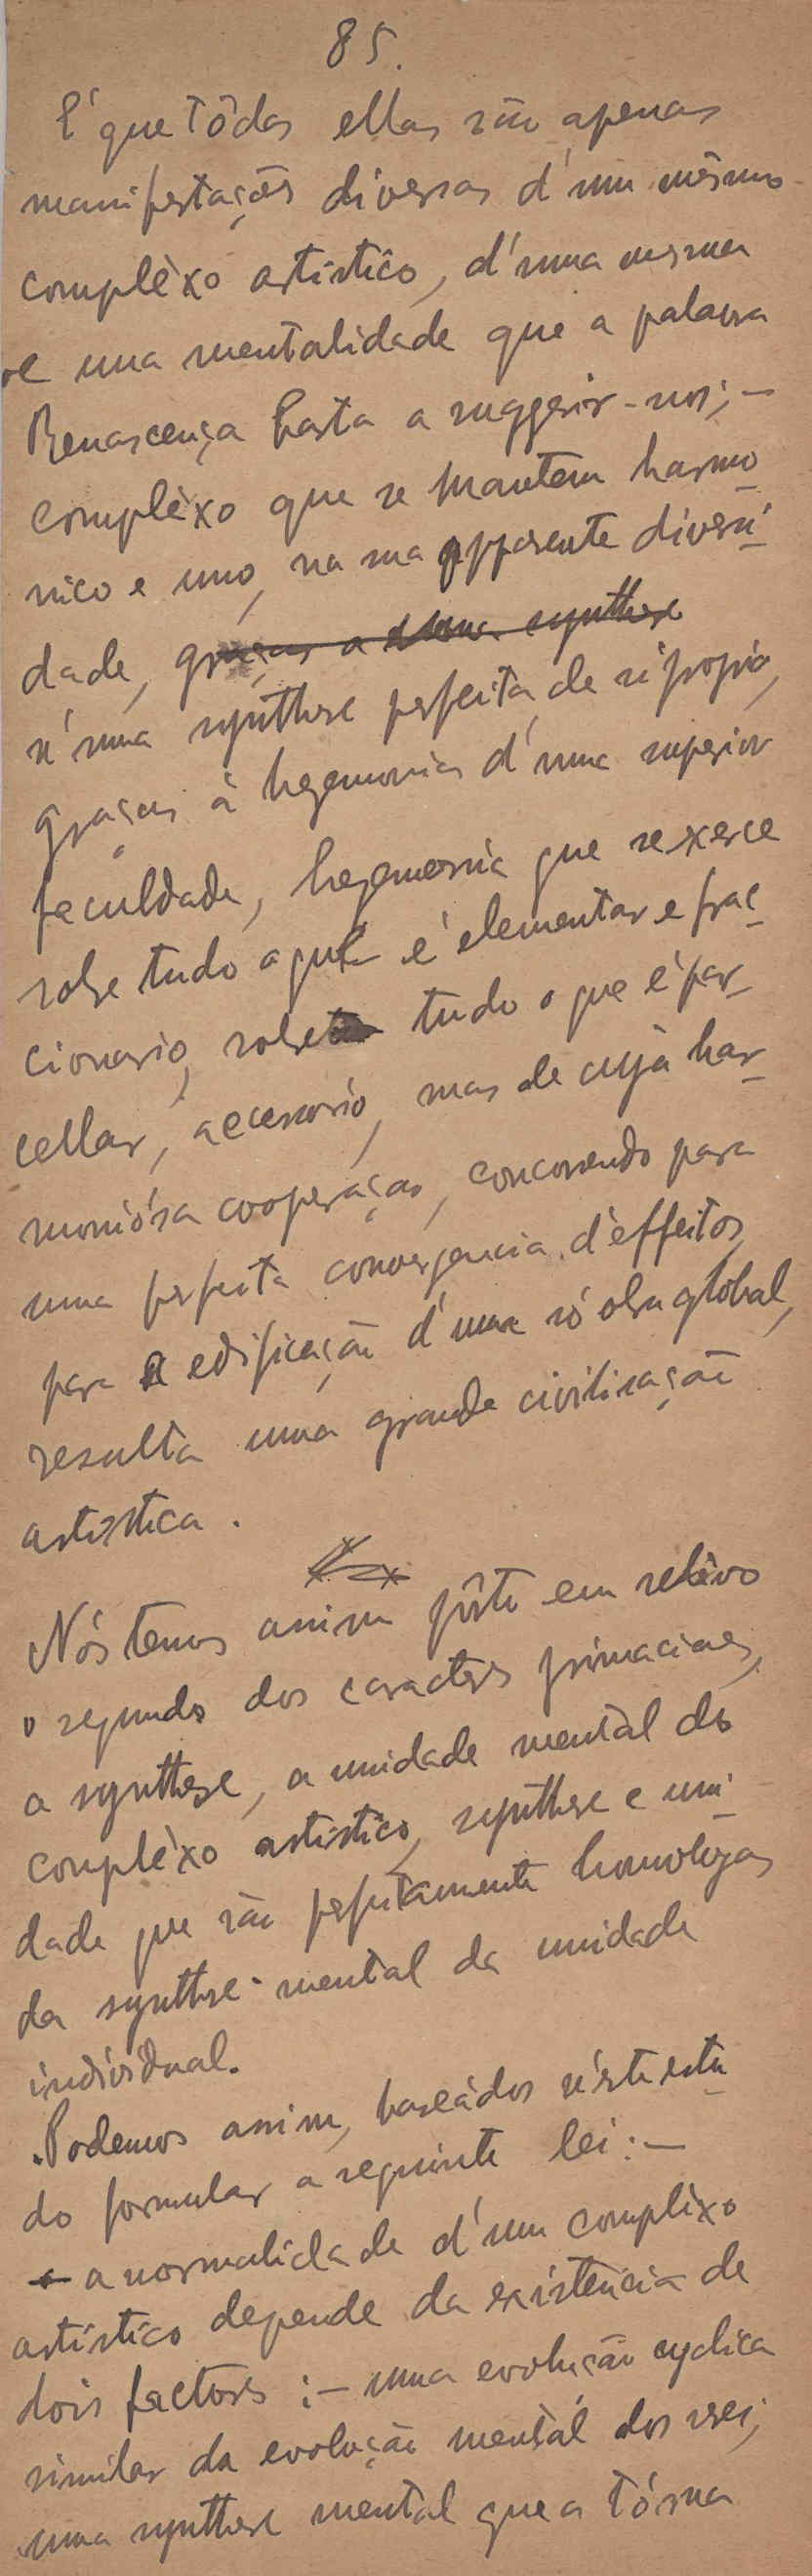 85.
E' que tôdas ellas são apenas
manifestações diversas d'um mêsmo
complèxo artistico, d'uma mesma
e una mentalidade que a palavra
Renascença basta a suggerir-nos; —
complèxo que se mantem harmo-
nico e uno, na sua apparente diversi-
dade, graças a uma synthese
n'uma synthese perfeita, de si propria,
graças à hegemonia d'uma superior
faculdade, hegemonia que se exerce
sobre tudo aquil é elementar e frac-
cionario, sobre tudo o que é par-
cellar, accessorio, mas de cujà har-
moniósa cooperaçao, concorrendo para
uma perfeita convergencia d'effeitos,
para a edificação d'uma só obra global,
resulta uma grande civilisação
artistica.
Nós temos assim pôsto em relêvo
o segundo dos caracteres primaciaes,
a synthese, a unidade mental do
complèxo artistico, synthese e uni-
dade que são perfeitamente homologas
da synthese mental da unidade
individual.
Podemos assim, baseádos n'éste estu-
do formular a seguinte lei: —
a normalidade d'um complèxo
artistico depende da existencia de
dois factores: — uma evolução cyclica
similar da evolução mental dos seres;
uma synthese mental que a tórna